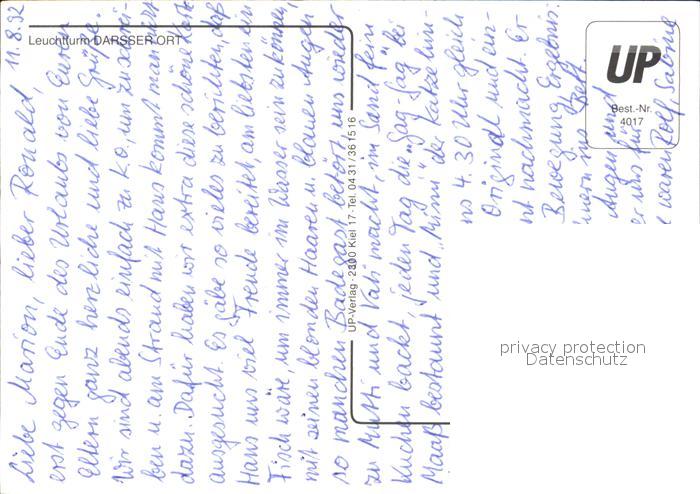 11.8.92
Liebe Marion, lieber Ronald,
erst gegen Ende des Urlaubs von Euren
Eltern ganz herzliche und liebe Grüße.
Wir sind abends einfach zu k.o., um zu schrei-
ben u. am Strand mit Hans kommt man nicht
dazu. Dafür haben wir extra diese schöne Karte
ausgesucht. Es gäbe so vieles zu berichten, daß
Hans uns viel Freude bereitet, am liebsten ein
Fisch wäre, um immer im Wasser sein zu können,
mit seinen blonden Haaren u. blauen Augen
so manchen Badegast betört uns wieder
zu Mutti und Vati macht, im Sand fein
Kuchen backt, jeden Tag die "Gag-Gag" bei
Mauß bestaunt und "Mimi" der Katze hin-
no 4.30 Uhr gleich
Original und ein-
nt nachmacht. Er
Bewegung Ergebnis:
mern ins Bett.
Augen und
er uns für
waren Rolf, Sabine
Leuchtturm DARSSER ORT
UP-Verlag · 2300 Kiel 17 · Tel. 04 31/36 15 16
UP
Best.-Nr.
4017
privacy protection
Datenschutz